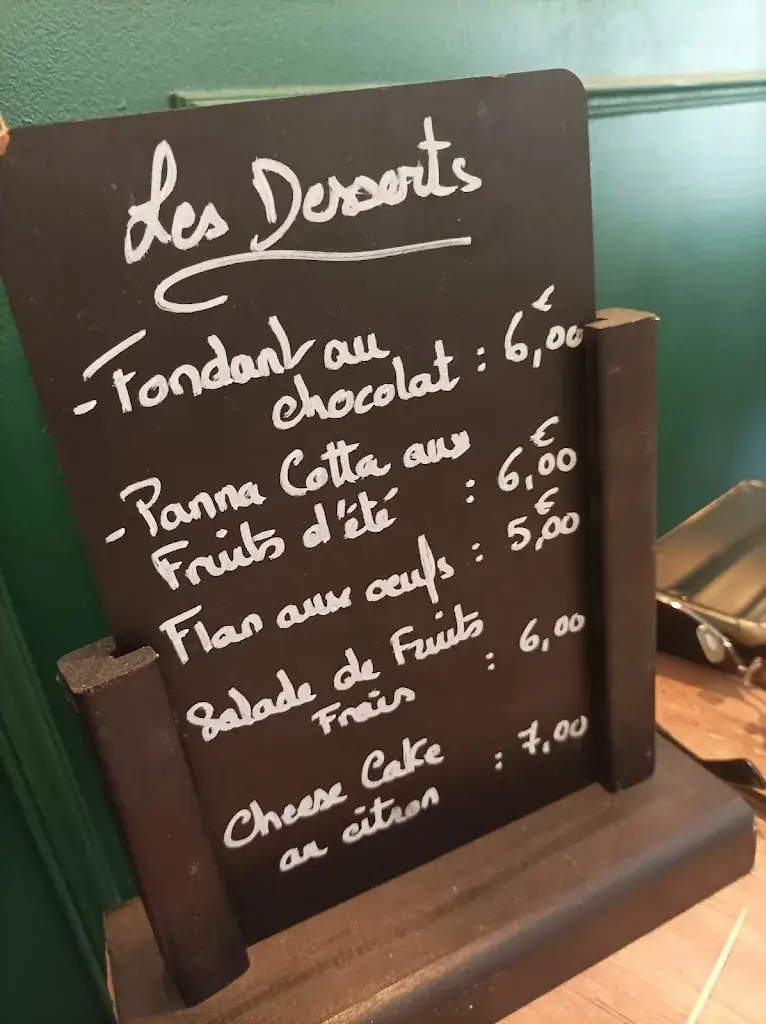 Les Desserts
- Fondant au
chocolat : 6,00€
- Panna Cotta aux
Fruits d'été : 6,00€
Flan aux oeufs : 5,00€
Salade de Fruits
Frais : 6,00
Cheese Cake : 7,00
au citron